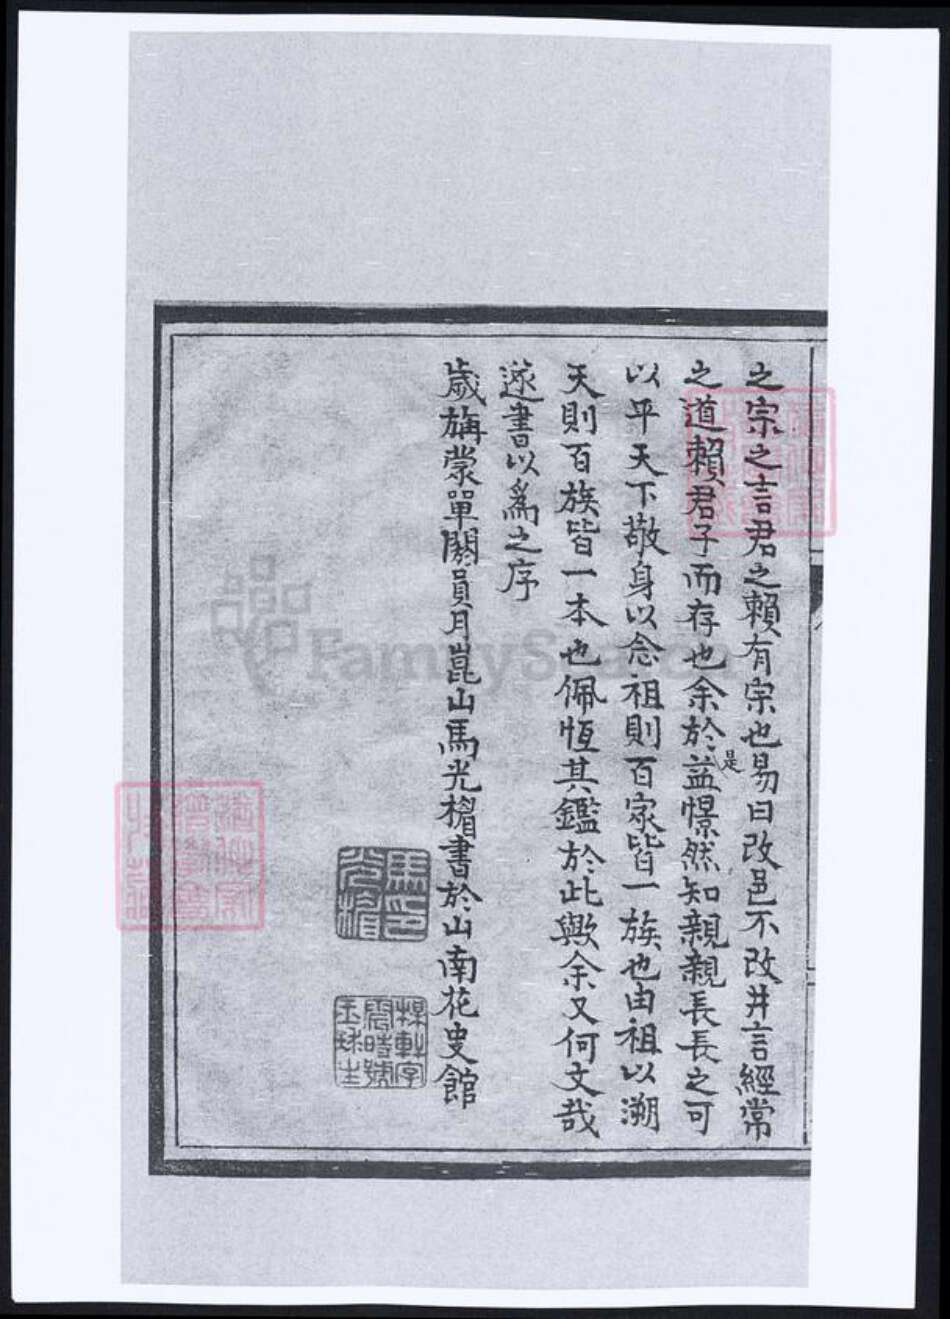 之宗之言君之賴有宗也易曰改邑不改井言經常
之道賴君子而存也余於是益憬然知親親長長之可
以平天下敬身以念祖則百家皆一族也由祖以溯
天則百族皆一本也佩恆其鑑於此歟余又何文哉
遂書以爲之序
歲旃蒙單閼員月崑山馬光楣書於山南花史館
馬印光楣
楳軒字震時號玉球生
FamilySearch